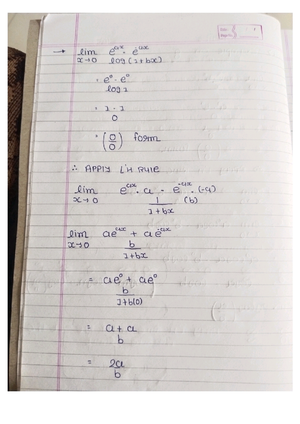 → lim e^ax - e^-ax
x→0 log(1+bx)
= e^0 - e^0
log 1
= 1 - 1
0
= (0/0) form
∴ APPLY L'H RULE
lim e^ax . a - e^-ax . (-a)
x→0 1/1+bx (b)
lim ae^ax + ae^-ax
x→0 b/1+bx
= ae^0 + ae^0
b/1+b(0)
= a + a
b
= 2a
b